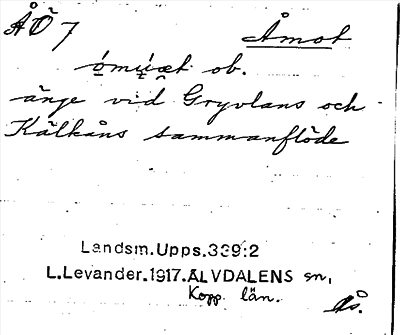 ÅÖ 7 Åmot
ob.
änge vid Gryvlans och
Kälkåns sammanflöde
Landsm.Upps.339:2
L.Levander.1917.ÄLVDALENS sn,
Kopp. län.